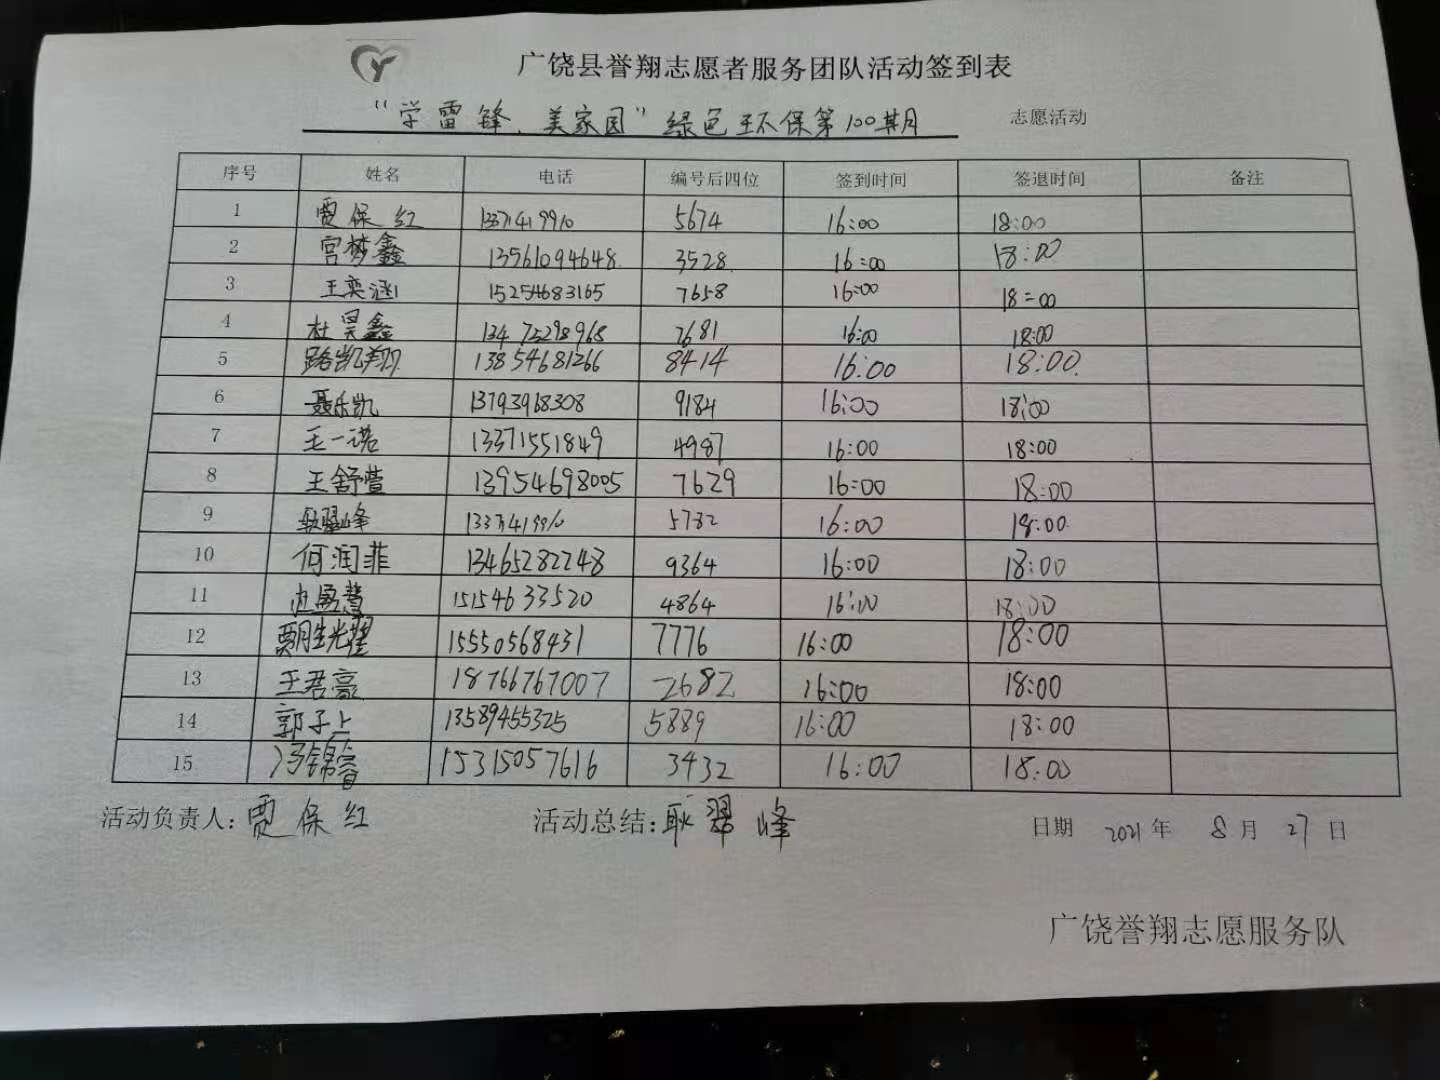 广饶县誉翔志愿者服务团队活动签到表
“学雷锋、美家园”绿色环保第100期 志愿活动
序号 姓名 电话 编号后四位 签到时间 签退时间 备注
1 贾保红 13371419910 5674 16:00 18:00
2 宫梦鑫 13561094648 3528 16:00 18:00
3 王奕涵 15254683165 7658 16:00 18:00
4 杜昊鑫 13475298968 2681 16:00 18:00
5 路凯翔 13854681266 8414 16:00 18:00
6 聂乐凯 13793968308 9184 16:00 18:00
7 王一诺 13371551849 4987 16:00 18:00
8 王舒萱 13954698005 7629 16:00 18:00
9 耿翠峰 13371419910 5782 16:00 18:00
10 何润菲 13465282248 9364 16:00 18:00
11 15154633520 4864 16:00 18:00
12 15550568431 7776 16:00 18:00
13 王君豪 18766767007 2682 16:00 18:00
14 郭子上 13589455325 5889 16:00 18:00
15 冯锦睿 15315057616 3432 16:00 18:00
活动负责人：贾保红 活动总结：耿翠峰 日期 2021年 8月 27日
广饶誉翔志愿服务队